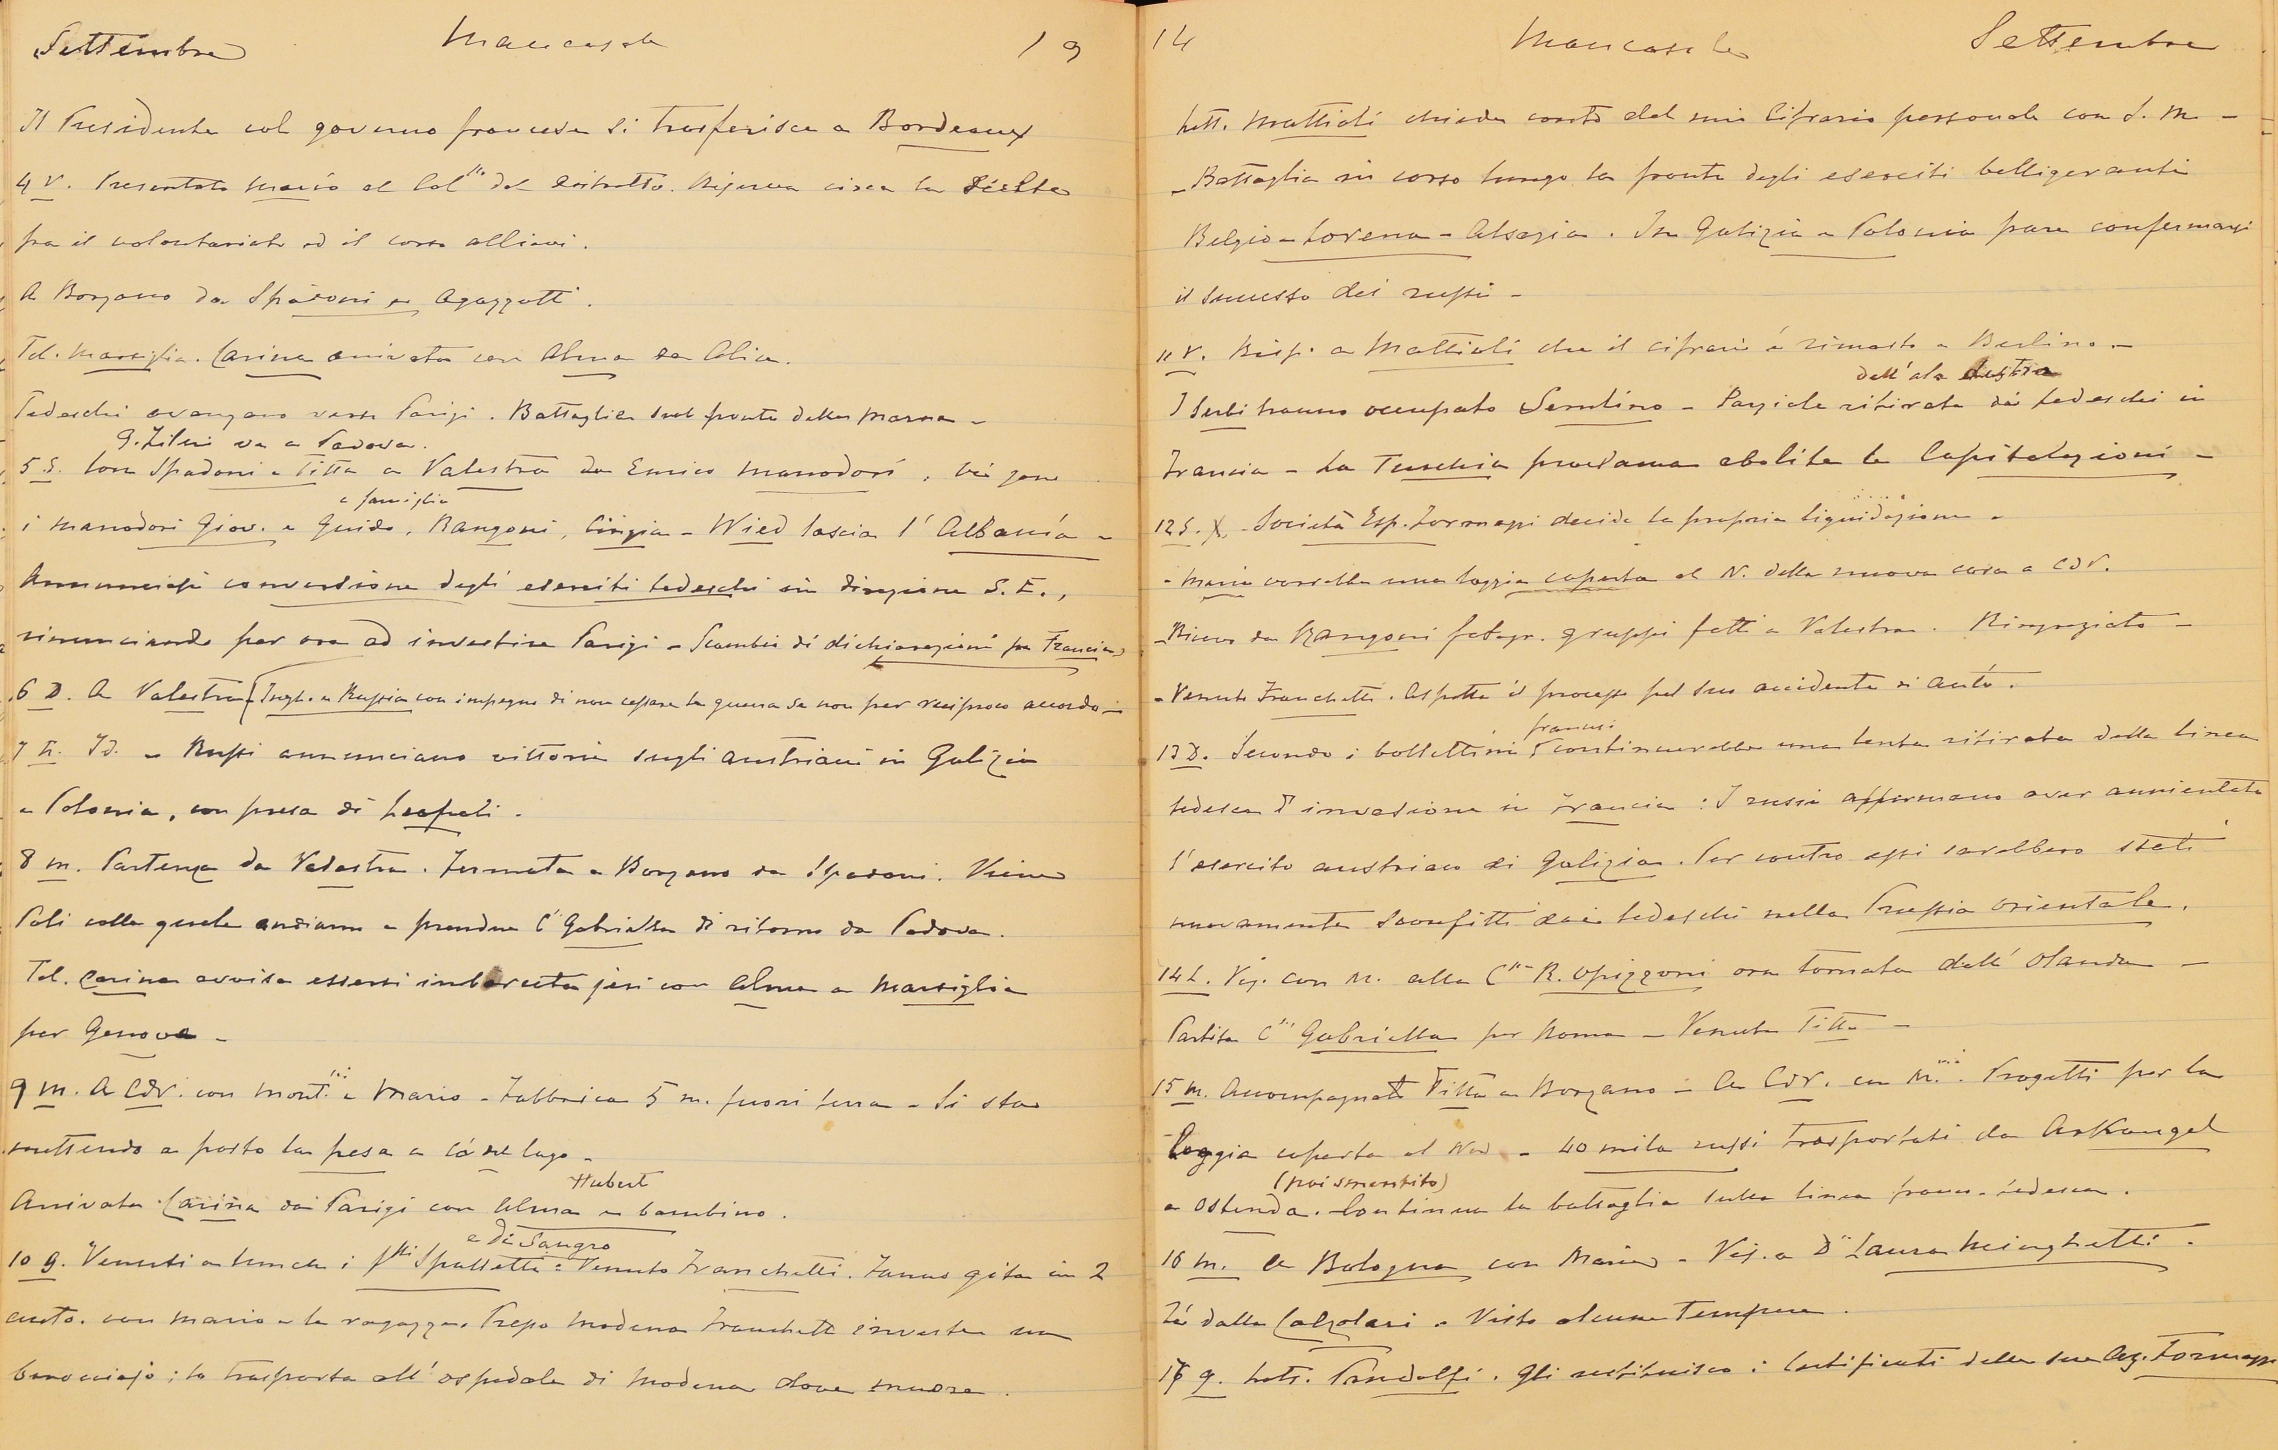 Settembre Mancasale 19
Il Presidente col governo francese si trasferisce a Bordeaux
4 V. Presentato Mario al Col.llo del Distretto. Riserva circa la scelta
fra il volontariato ed il corso allievi.
A Borzano da Spadoni e Agazzotti.
Tel. Marsiglia. Carina arrivata con Alma da
Tedeschi avanzano verso Parigi. Battaglia sul fronte della Marna -
G. Zileri va a Padova.
5 S. Con Spadoni e Titta a Valestra da Enrico Manodori. Vi sono
e famiglia
i Manodori Giov. e Guido, Rangoni, Cinzia - Wied lascia l'Albania -
Annunciasi conversione degli eserciti tedeschi in direzione S.E.,
rinunciando per ora ad investire Parigi - Scambio di dichiarazioni fra Francia,
6 D. A Valestra [Ingh. e Russia con impegno di non cessare la guerra se non per reciproco accordo -
7 L. Id. - Russi annunciano vittoria sugli austriaci in Galizia
e Polonia, con presa di Leopoli.
8 M. Partenza da Valestra. Fermata a Borzano da Spadoni. Viene
Poli colla quale andiamo a prendere C.a Gabriella di ritorno da Padova.
Tel. Carina avvisa essersi imbarcata jeri con Alma a Marsiglia
per Genova -
9 M. A CdV. con Mont.ri e Mario - Fabbrica 5 m. fuori terra - Si sta
mettendo a posto la pesa a Cà del lago -
Hubert
Arrivata Carina da Parigi con Alma e bambino.
e di Sangro
10 G. Venuti a lunch i Spalletti - Venuto Franchetti. Fanno gita in 2
auto. con Mario e le ragazze. Presso Modena Franchetti investe un
barocciajo; lo trasporta all'ospedale di Modena dove muore.
14 Mancasale Settembre
Lett. Mattioli chiede conto del mio Cifrario personale con S. M. -
- Battaglia in corso lungo la fronte degli eserciti belligeranti
Belgio - Lorena - Alsazia. In Galizia e Polonia pare confermarsi
il successo dei russi -
11 V. Risp. a Mattioli che il cifrario è rimasto a Berlino. -
dell'ala destra
I Serbi hanno occupato Semlino - Parziale ritirata dei tedeschi in
Francia - La Turchia proclama abolite le Capitolazioni -
12 S. X - Società Esp. Formaggi decide la propria liquidazione -
- Mario vorrebbe una loggia coperta al N. della nuova casa a CdV.
- Ricevo da Rangoni fotogr. gruppi fatti a Valestra. Ringraziato -
- Venuto Franchetti. Aspetta il processo pel suo accidente di auto.
francesi
13 D. Secondo i bollettini continuerebbe una lenta ritirata della linea
tedesca d'invasione in Francia: I russi affermano aver annientato
l'esercito austriaco di Galizia. Per contro essi sarebbero stati
nuovamente sconfitti dai tedeschi nella Prussia orientale.
14 L. Vis. con M. alla C.ssa R. Opizzoni ora tornata dall'Olanda -
Partita C.a Gabriella per Roma - Venuta Titta -
15 M. Accompagnato Titta a Borzano - A CdV. con M. Progetti per la
loggia coperta al Nord - 40 mila russi trasportati da Arkangel
(poi smentito)
a Ostenda. Continua la battaglia sulla linea franco-tedesca.
16 M. A Bologna con Mario - Vis. a D.a Laura Minghetti -
Tè dalla Calzolari - Visto alcune Tempere.
17 G. Lett. Pandolfi. Gli restituisco i Certificati delle sue Az. Formaggi